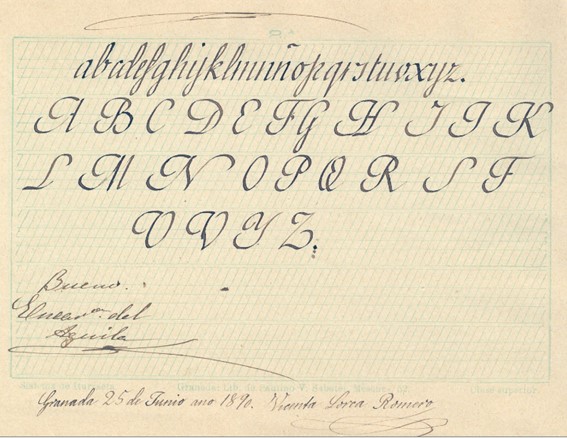 abcdefghijklmnñopqrstuvxyz.
A B C D E F G H I J K
L M N O P Q R S T
U V Y Z.
Bueno.
del
Aguila
Granada 25 de Junio ano 1890. Vicenta Lorca Romero